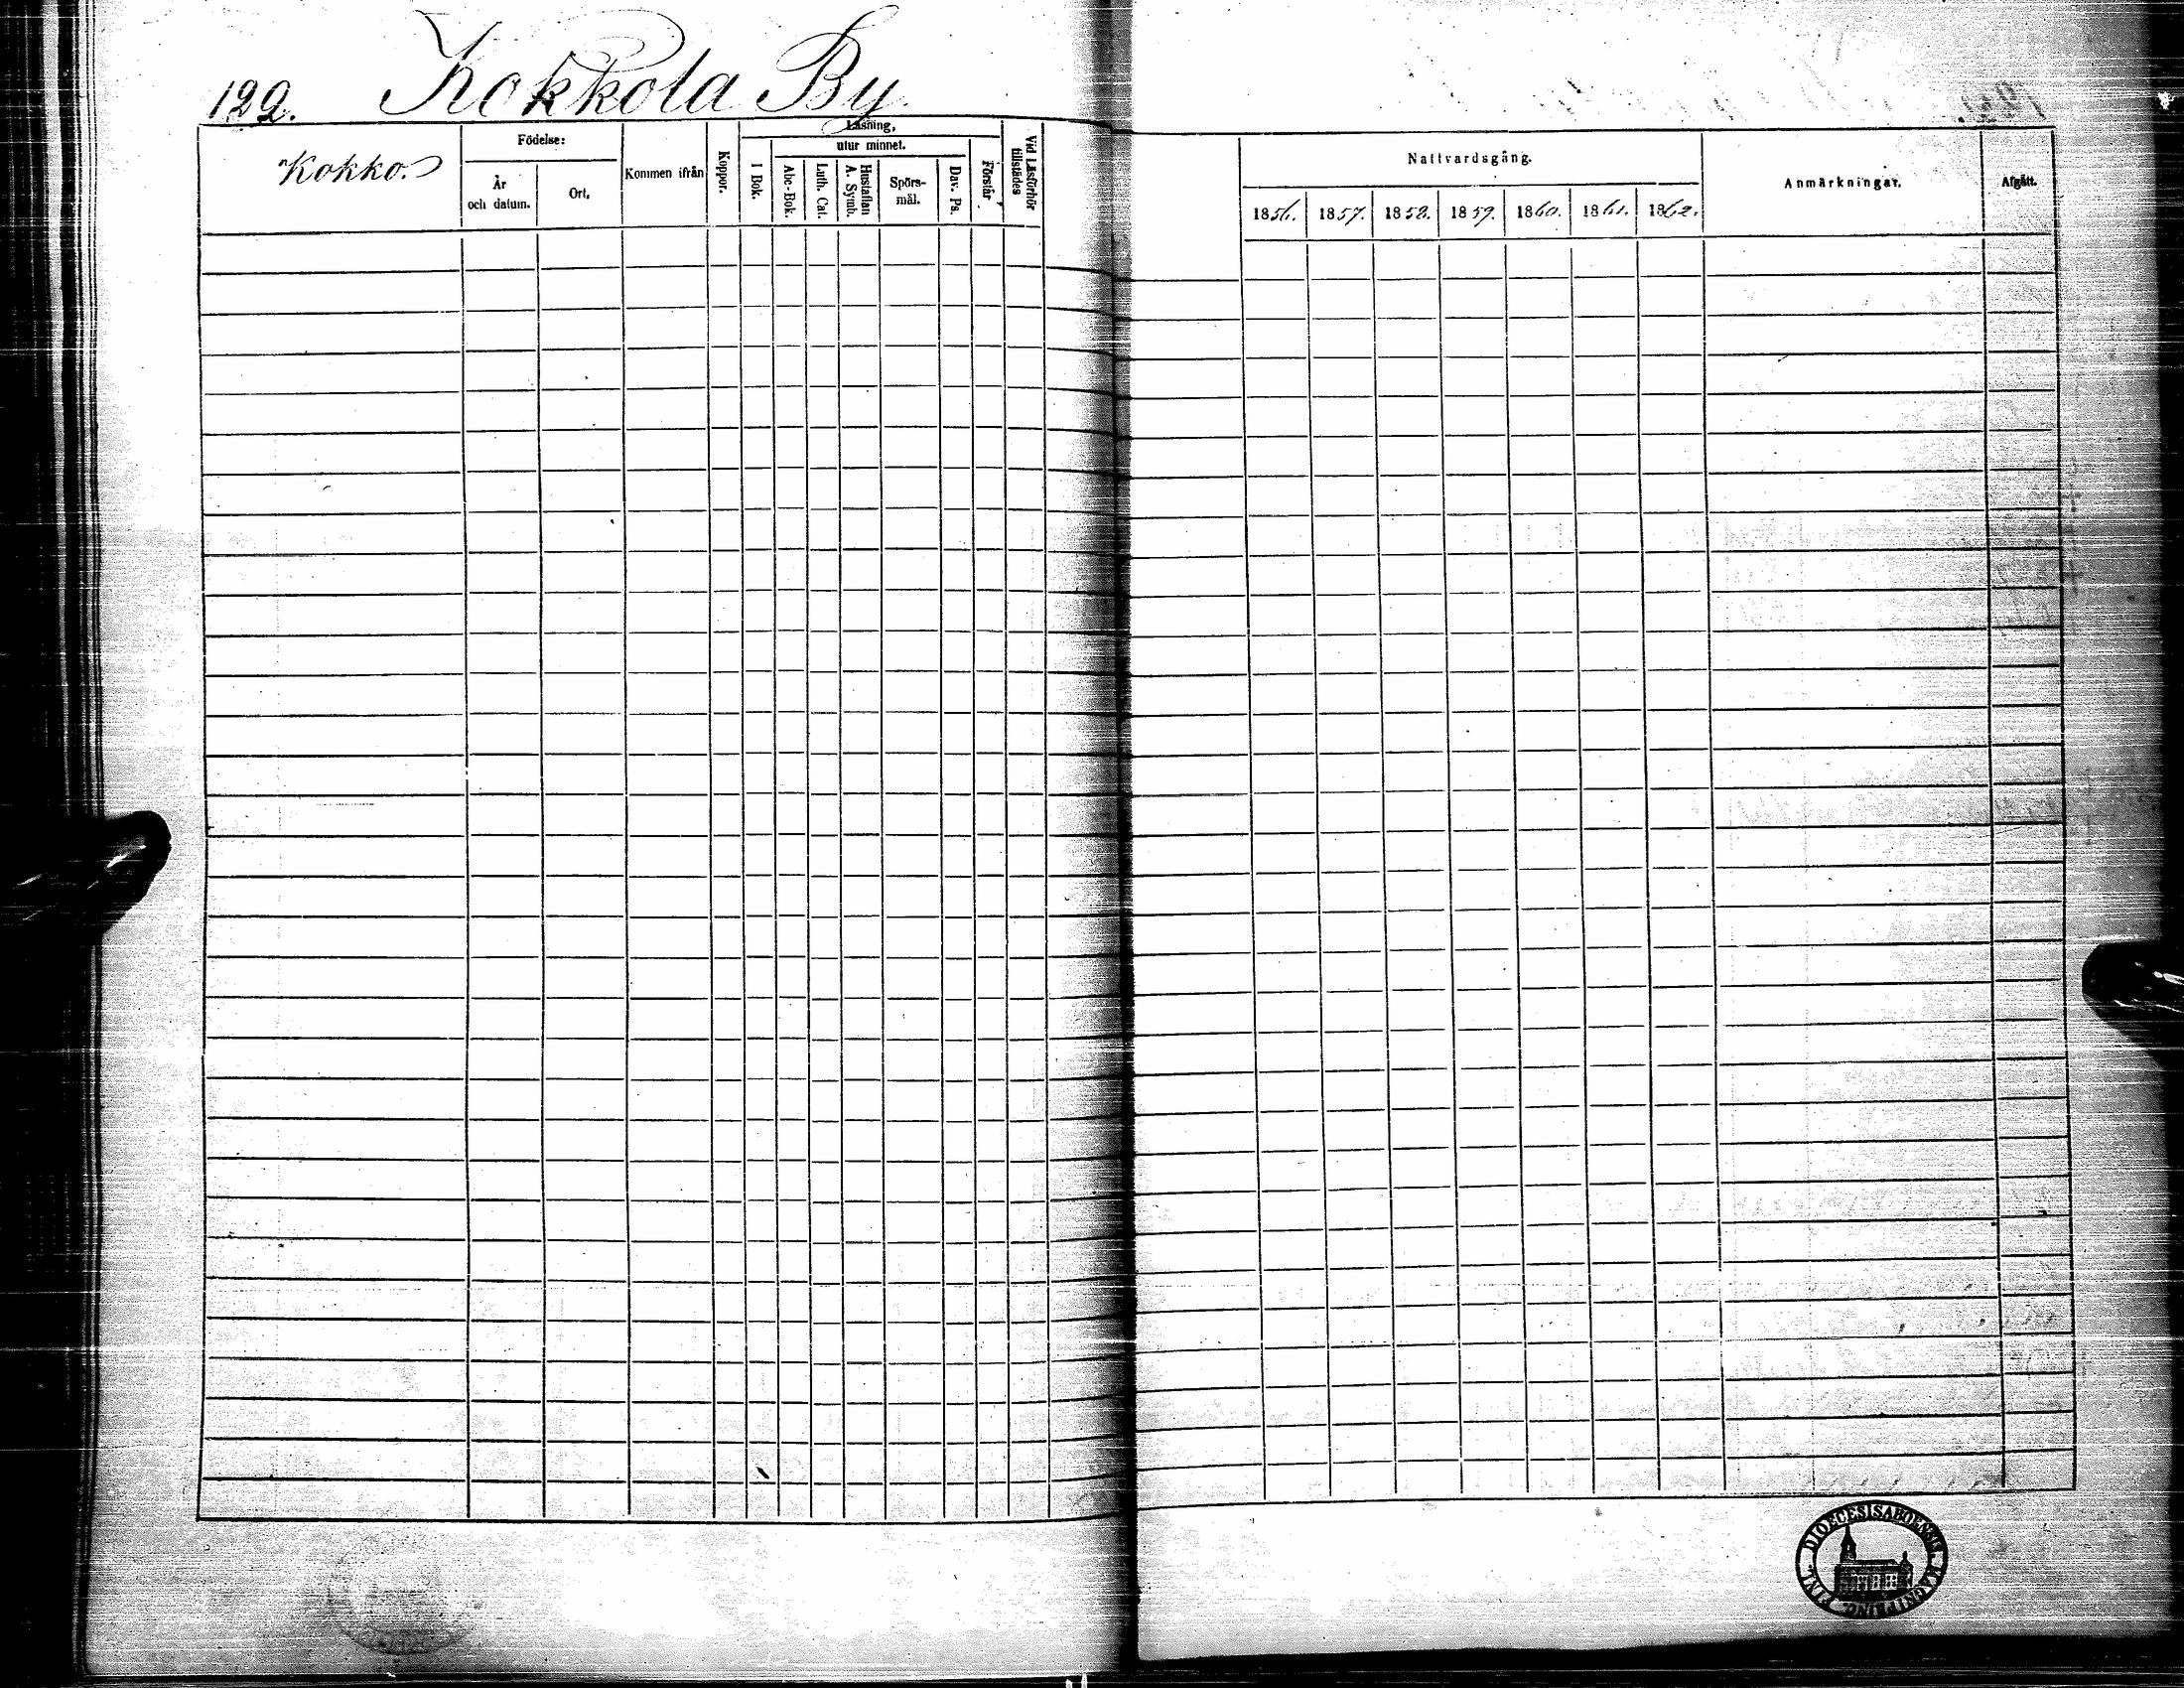 122. Kokkola By.
Kokko.
Födelse:
År
och datum.
Ort.
Kommen ifrån
Koppor.
Läsning,
utur minnet.
I Bok.
Abc-Bok.
Luth. Cat.
Hustaflan
A. Symb.
Spörs-
mål.
Dav. Ps.
Förstår
Vid Läsförhör
tillstädes
Nattvardsgång.
1856. 1857. 1858. 1859. 1860. 1861. 1862.
Anmärkningar.
Afgått.
DIOECESIS ABOENSIS MAGNI PRINC. FINL.